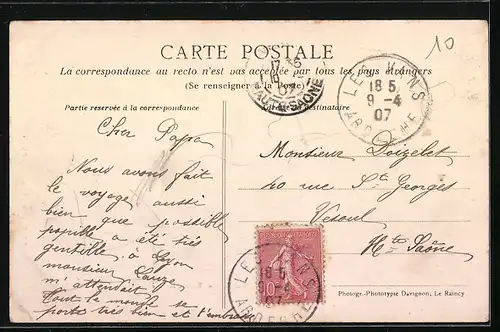 10
CARTE POSTALE
La correspondance au recto n'est pas acceptée par tous les pays étrangers
(Se renseigner à la Poste)
Partie réservée à la correspondance
destinataire
HAUTE-SAONE
LES VANS
18 5
9 -4
07
ARDECHE
Cher Papa
Nous avons fait
le voyage aussi
bien que possible
a été très
gentille, à Lyon
monsieur
m'attendait
Tout le monde se
porte très bien et t'embrasse
Monsieur Doizelet
40 rue St Georges
Vesoul
Hte Saône
10
LES VANS
18 5
9 -4
07
ARDECHE
Photogr.-Phototypie Davignon, Le Raincy